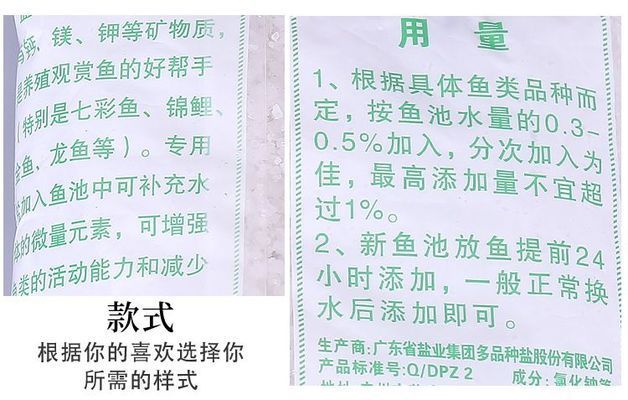 钙、镁、钾等矿物质，
是养殖观赏鱼的好帮手
（特别是七彩鱼、锦鲤、
金鱼、龙鱼等）。专用
加入鱼池中可补充水
体的微量元素，可增强
鱼类的活动能力和减少
款式
根据你的喜欢选择你
所需的样式
用 量
1、根据具体鱼类品种而
定，按鱼池水量的0.3-
0.5%加入，分次加入为
佳，最高添加量不宜超
过1%。
2、新鱼池放鱼提前24
小时添加，一般正常换
水后添加即可。
生产商：广东省盐业集团多品种盐股份有限公司
产品标准号：Q/DPZ 2 成分：氯化钠等